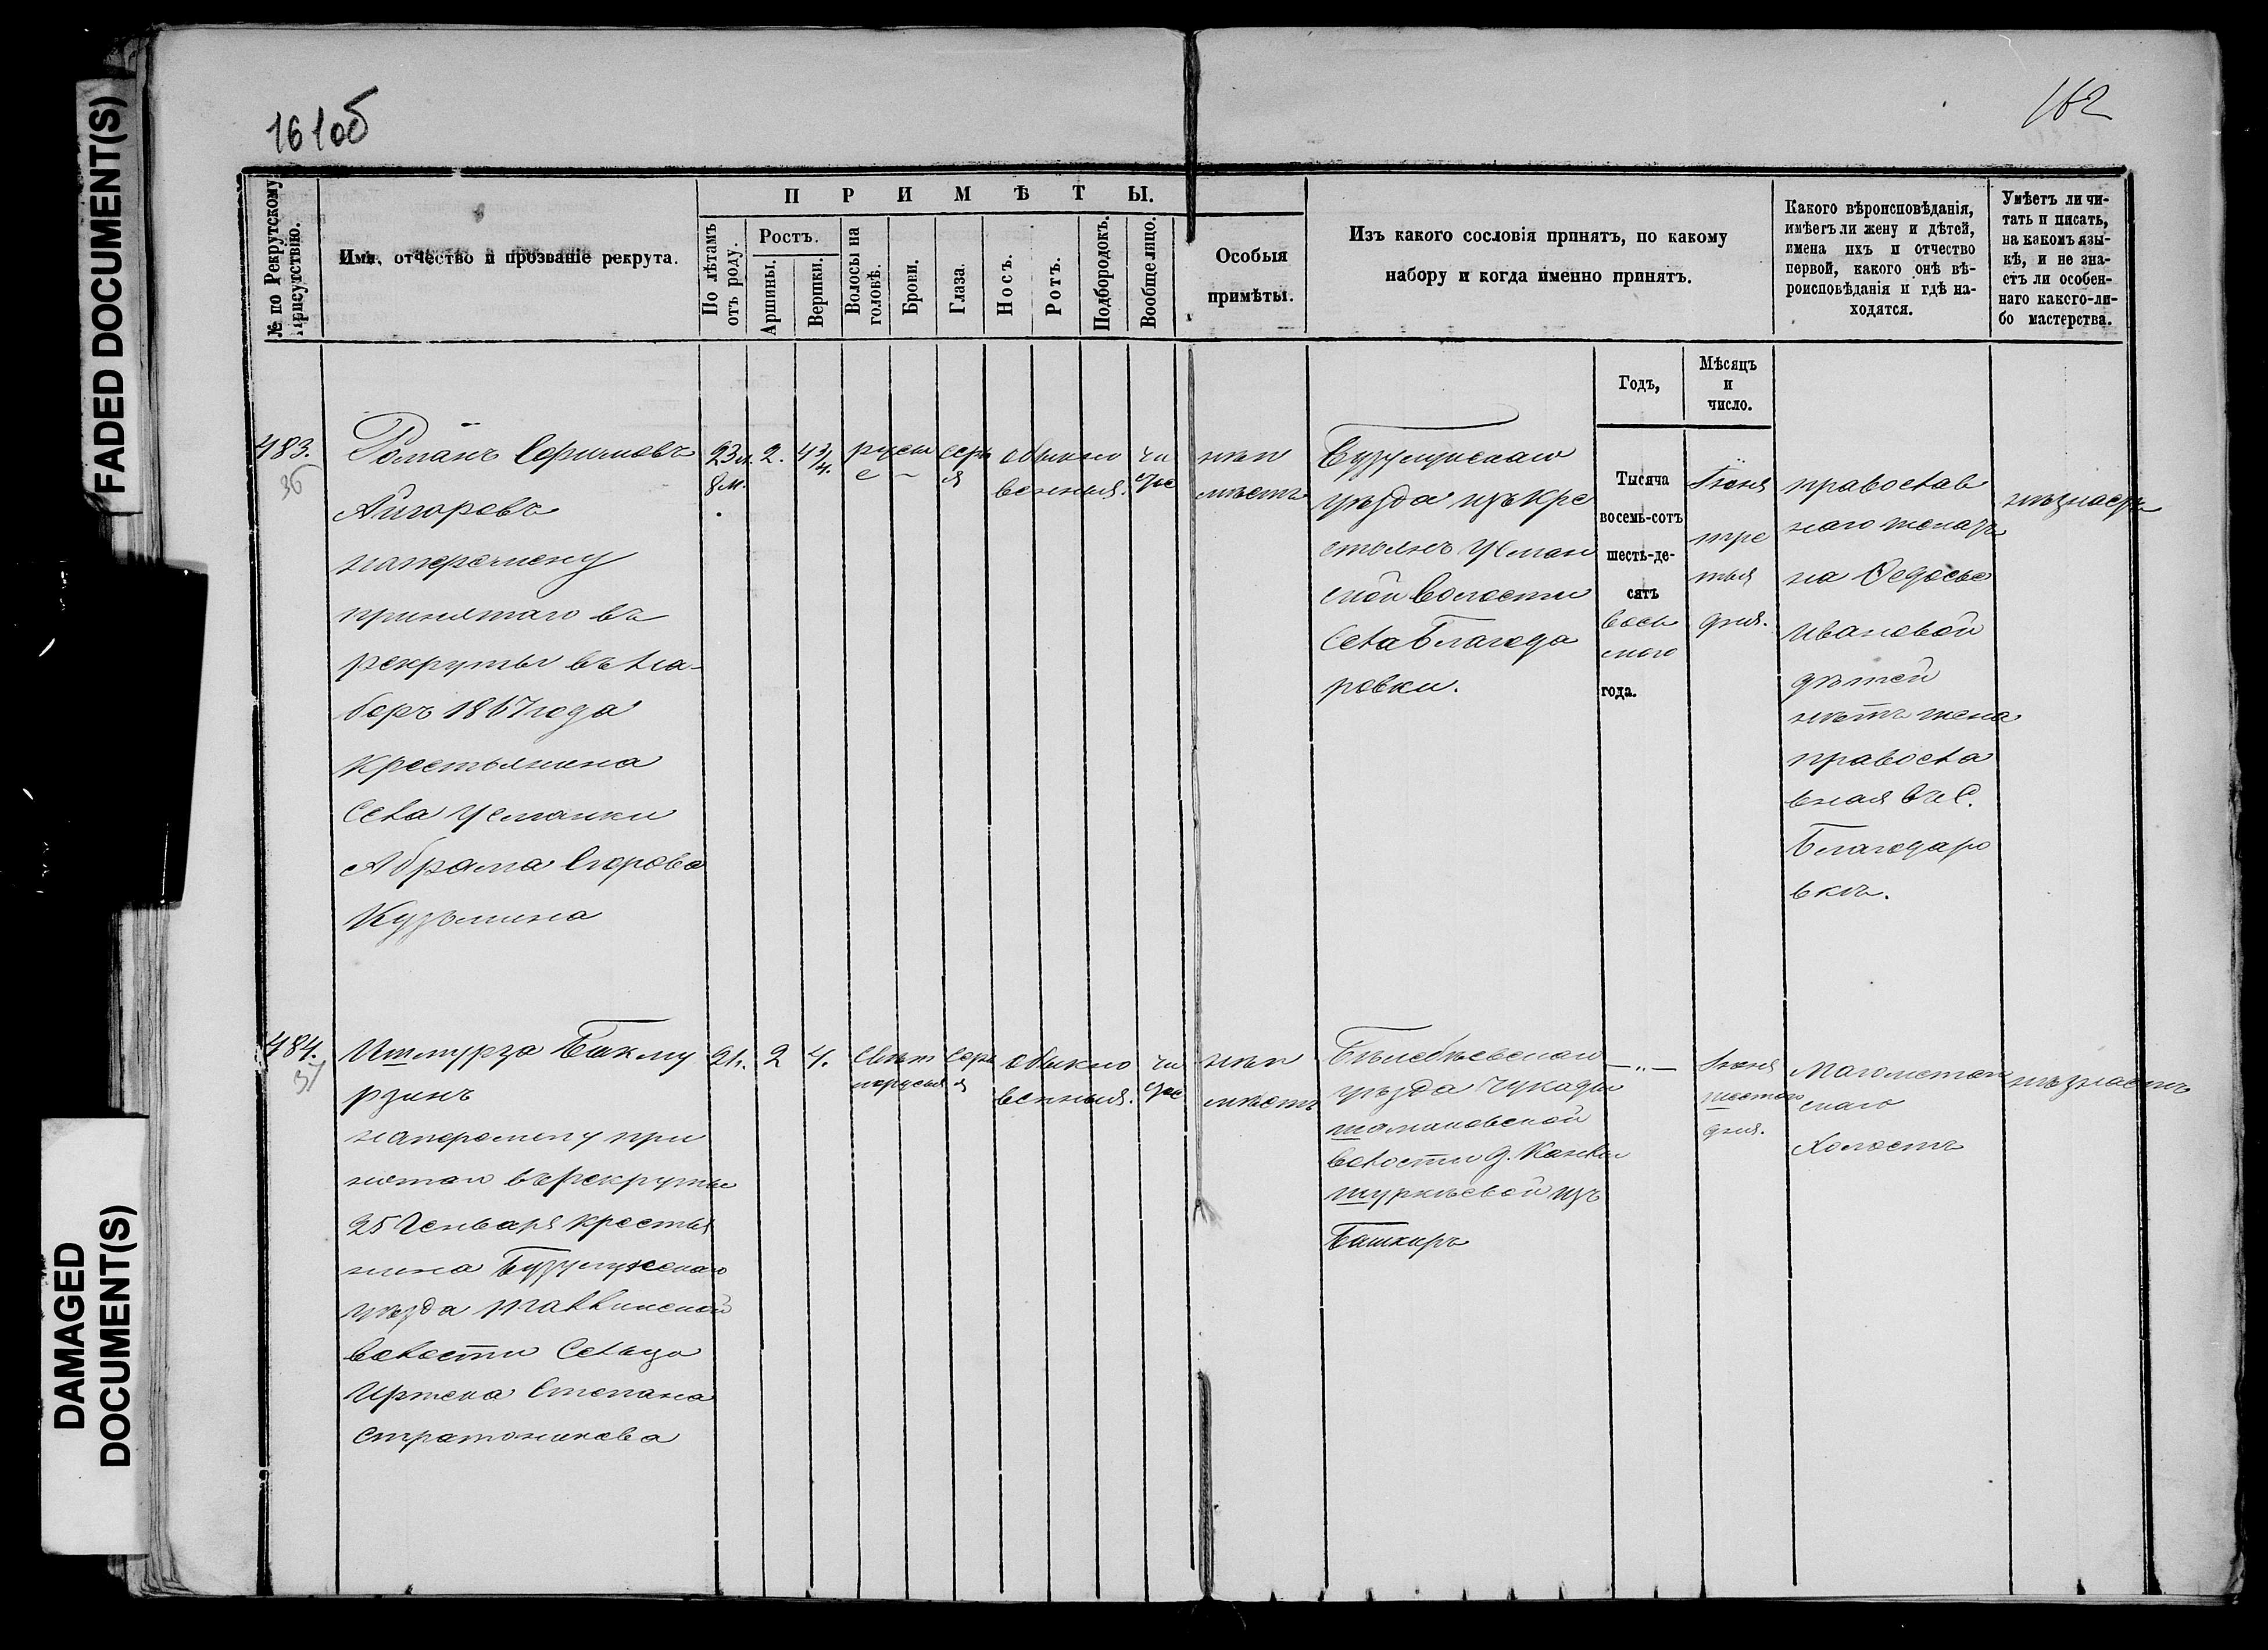 FADED DOCUMENT(S)
DAMAGED
DOCUMENT(S)
161об
162
№ по Рекрутскому
Присутствію.
Имя, отчество и прозваніе рекрута.
ПРИМѢТЫ.
По лѣтамъ
отъ роду.
Ростъ.
Аршины.
Вершки.
Волосы на
головѣ.
Брови.
Глаза.
Носъ.
Ротъ.
Подбородокъ.
Вообще лицо.
Особыя
примѣты.
Изъ какого сословія принятъ, по какому
набору и когда именно принятъ.
Какого вѣроисповѣданія,
имѣетъ ли жену и дѣтей,
имена ихъ и отчество
первой, какого онѣ вѣ-
роисповѣданія и гдѣ на-
ходятся.
Умѣетъ ли чи-
тать и писать,
на какомъ язы-
кѣ, и не зна-
етъ ли особен-
наго какого-ли-
бо мастерства.
Годъ,
Мѣсяцъ
и
число.
483.
36
Романъ
наперемену
принятаго въ
рекруты въ на-
боръ 1867 года
крестьянина
Села Усманки
Абрама Егорова
Кузьмина
23 л.
8 м.
2.
4 3/4
русы
е
серы
я
обыкно
венныя.
чи
стое
неи
мѣетъ
Бузулускаго
уѣзда изъ кре
стьянъ Усман
ской волости
Села Благода
ровки.
Тысяча
восемь-сотъ
шесть-де-
сятъ
вось
мого
года.
Іюня
тре
тья
дня.
православ
наго женатъ
на Федосье
Ивановой
дѣтей
нѣтъ жена
правосла
вная въ С.
Благодаро
вкѣ.
незнаетъ
484.
37
Ишмурза Бикму
рзинъ
наперемену при
нятаго въ рекруты
25 Генваря крестья
нина Бузулукскаго
уѣзда
волости Сельца
Иртека Степана
Стратоникова
21.
2
4.
свѣт
лорусыя
серы
я
обыкно
венныя.
чи
стое
неи
мѣетъ
Бѣлебѣевскаго
уѣзда Чукады
тамаковской
волости д.
изъ
Башкиръ
—„—
Іюня
шестого
дня.
Магометан
скаго
Холостъ
незнаетъ